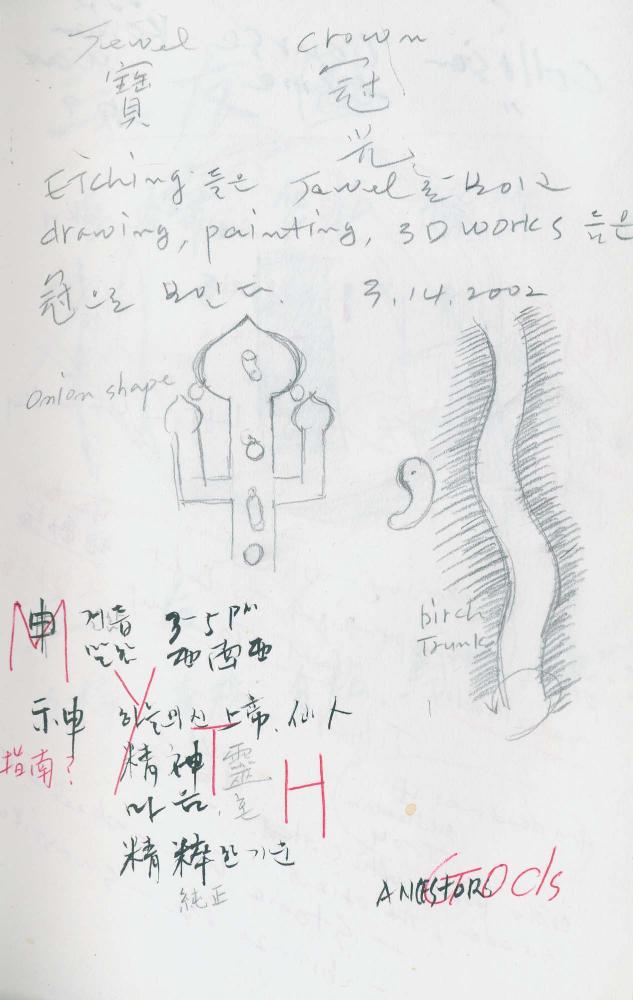 Jewel crown
寶 冠
光
Etching 들은 Jewel로 보이고
drawing, painting, 3D works 들은
冠으로 보인다. 3.14.2002
onion shape
birch
Trunk
M
申 거듭 3-5 PM
말씀 西南西
Y
示申 하늘의 신 上帝. 仙人
T
指南?
精神 靈
H
마음. 혼
精粹한 기운
純正
ANCESTORS
GODs